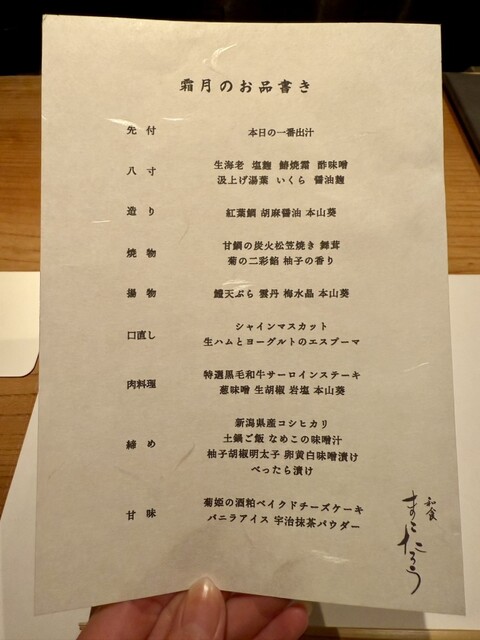 霜月のお品書き
先 付 本日の一番出汁
八 寸 生海老 塩麹 鰆焼霜 酢味噌
汲上げ湯葉 いくら 醤油麹
造 り 紅葉鯛 胡麻醤油 本山葵
焼 物 甘鯛の炭火松笠焼き 舞茸
菊の二彩餡 柚子の香り
揚 物 鱧天ぷら 雲丹 梅水晶 本山葵
口直し シャインマスカット
生ハムとヨーグルトのエスプーマ
肉料理 特選黒毛和牛サーロインステーキ
葱味噌 生胡椒 岩塩 本山葵
締 め 新潟県産コシヒカリ
土鍋ご飯 なめこの味噌汁
柚子胡椒明太子 卵黄白味噌漬け
べったら漬け
甘 味 菊姫の酒粕ベイクドチーズケーキ
バニラアイス 宇治抹茶パウダー
和食
まこたろう